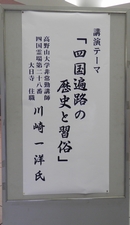 講演テーマ
「四国遍路の
歴史と習俗」
高野山大学非常勤講師
四国霊場第二十八番
大日寺 住職
川崎一洋氏